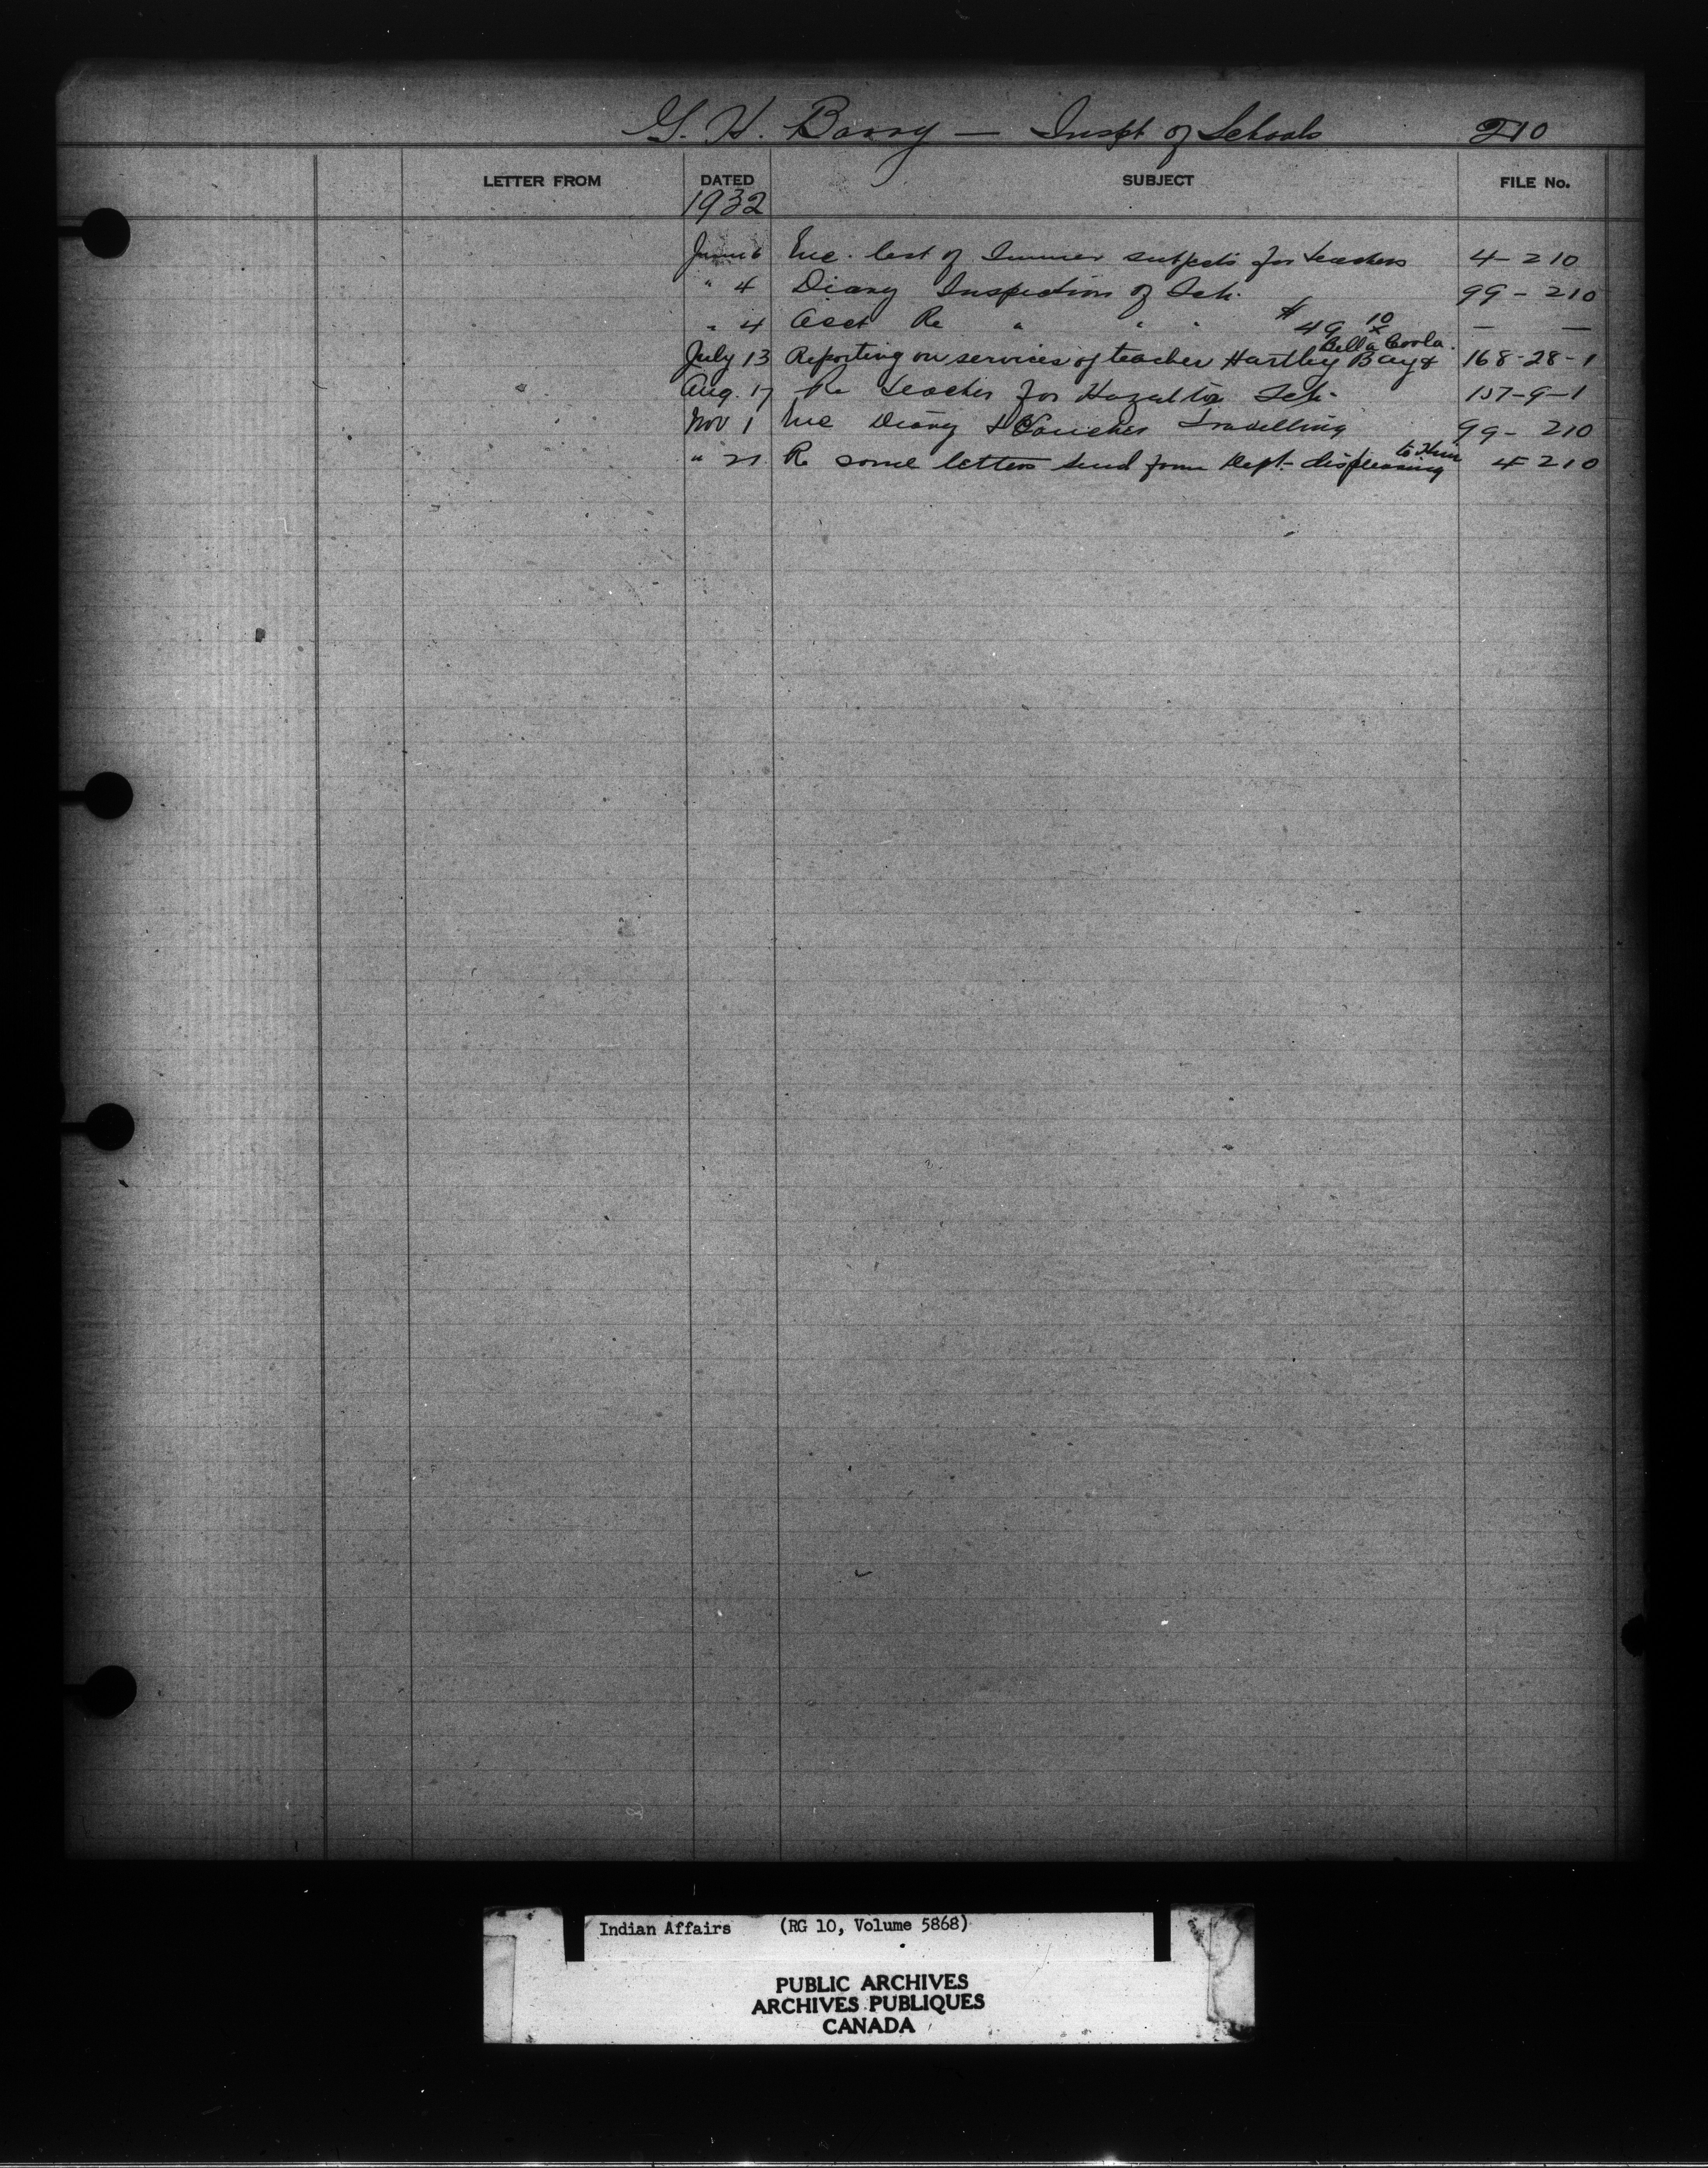 G. H. Barry — Inspt of Schools 210
LETTER FROM DATED SUBJECT FILE No.
1932
June 6 Enc. list of Summer subjects for teachers 4-210
" 4 Diary Inspection of Sch. 99-210
" 4 Acct Re " " " $49 10/x — —
July 13 Reporting on services of teacher Hartley Bay & Bella Coola. 168-28-1
Aug. 17 Re teacher for Hazelton Sch. 157-9-1
Nov 1 Enc Diary & Voucher Travelling 99-210
" 21 Re some letters send from Dept. displeasing to him 4-210
Indian Affairs (RG 10, Volume 5868)
PUBLIC ARCHIVES
ARCHIVES PUBLIQUES
CANADA